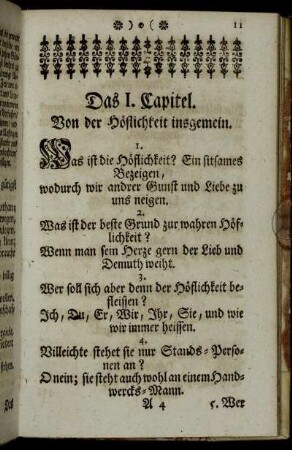 11
Das I. Capitel.
Von der Höflichkeit insgemein.
1.
Was ist die Höflichkeit? Ein sitsames
Bezeigen,
wodurch wir andrer Gunst und Liebe zu
uns neigen.
2.
Was ist der beste Grund zur wahren Höf-
lichkeit?
Wenn man sein Herze gern der Lieb und
Demuth weiht.
3.
Wer soll sich aber denn der Höflichkeit be-
fleissen?
Ich, Du, Er, Wir, Ihr, Sie, und wie
wir immer heissen.
4.
Villeichte stehet sie nur Stands-Perso-
nen an?
O nein; sie steht auch wohl an einem Hand-
wercks-Mann.
A 4
5. Wer